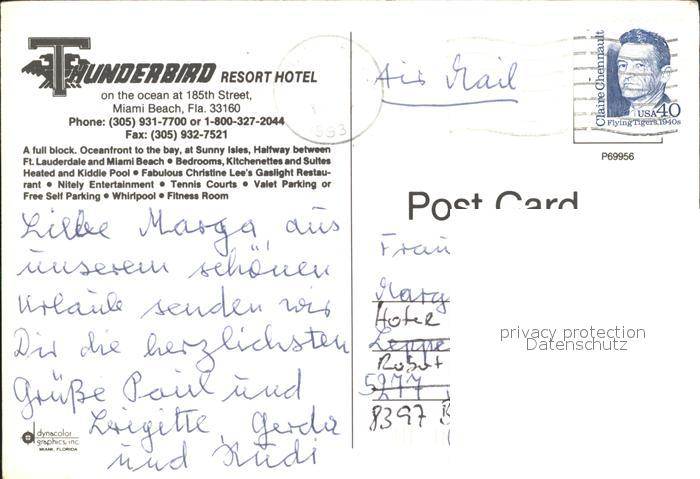 THUNDERBIRD RESORT HOTEL
on the ocean at 185th Street,
Miami Beach, Fla. 33160
Phone: (305) 931-7700 or 1-800-327-2044
Fax: (305) 932-7521
A full block. Oceanfront to the bay, at Sunny Isles, Halfway between
Ft. Lauderdale and Miami Beach • Bedrooms, Kitchenettes and Suites
Heated and Kiddie Pool • Fabulous Christine Lee's Gaslight Restau-
rant • Nitely Entertainment • Tennis Courts • Valet Parking or
Free Self Parking • Whirlpool • Fitness Room
Liebe Marga, aus
unserem schönen
Urlaub senden wir
Dir die herzlichsten
Grüße Paul und
Brigitte, Gerda
und Rudi
dynacolor
graphics, inc.
MIAMI, FLORIDA
1993
Air Mail
Claire Chennault
USA 40
Flying Tigers, 1940s
P69956
Post Card
Frau
Marg
Hotel
Leppe
Robot
5277
8397 B
privacy protection
Datenschutz